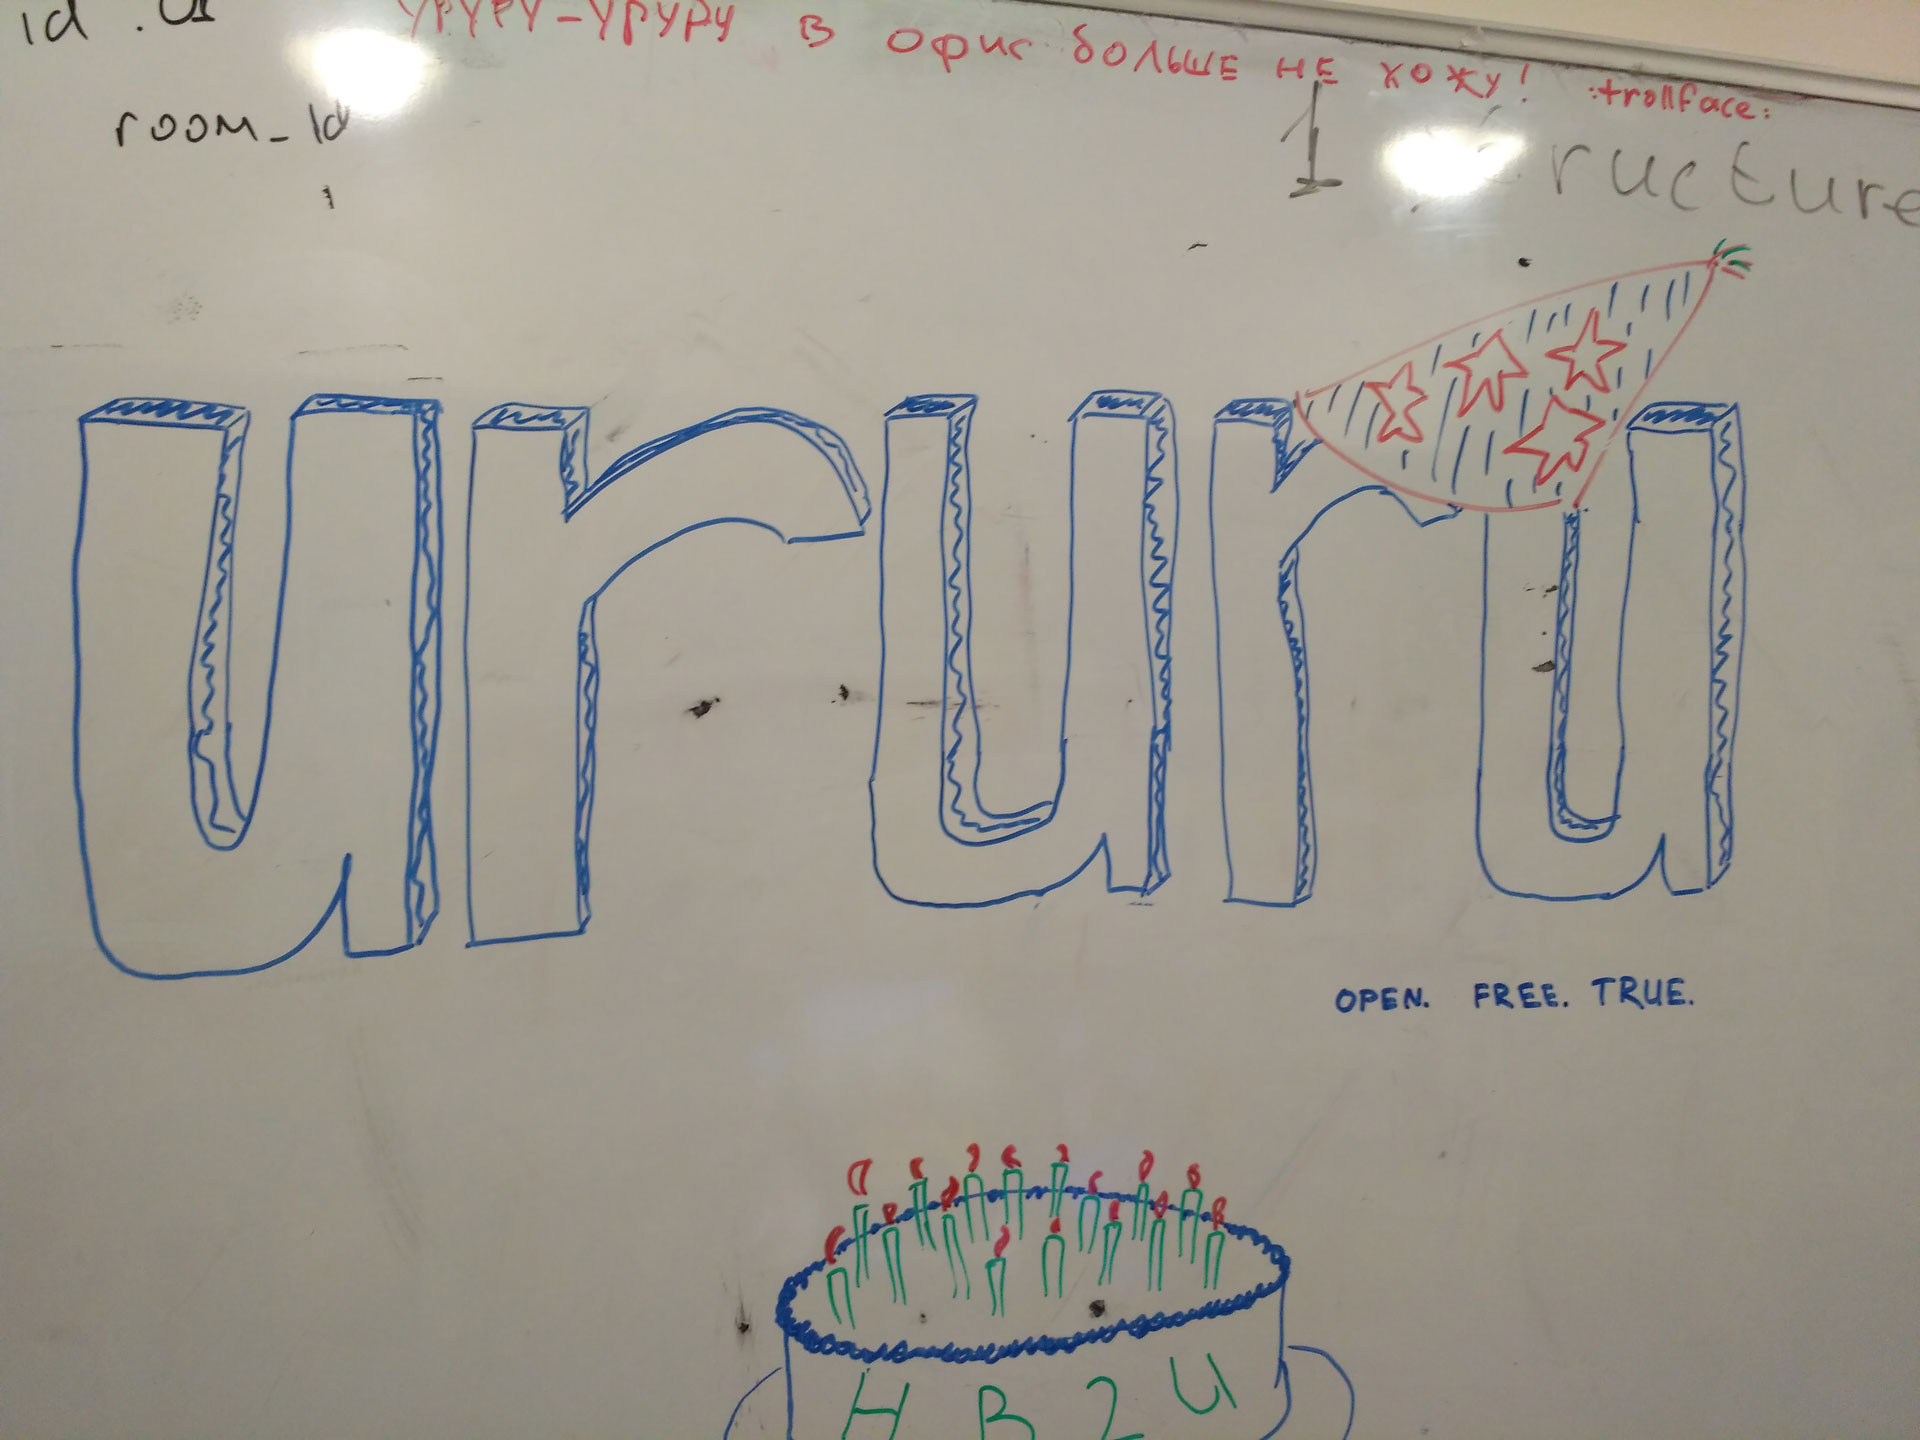 id
уруру-уруру в офис больше не хожу! :trollface:
room_id
1 structure
ururu
OPEN. FREE. TRUE.
H B 2 U